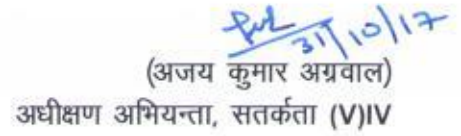 31/10/17
(अजय कुमार अग्रवाल)
अधीक्षण अभियन्ता, सतर्कता (V)IV